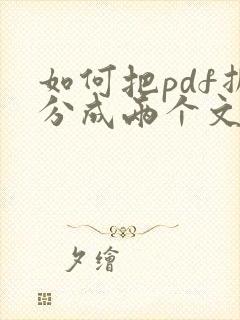 如何把pdf拆
分成两个文
夕繪